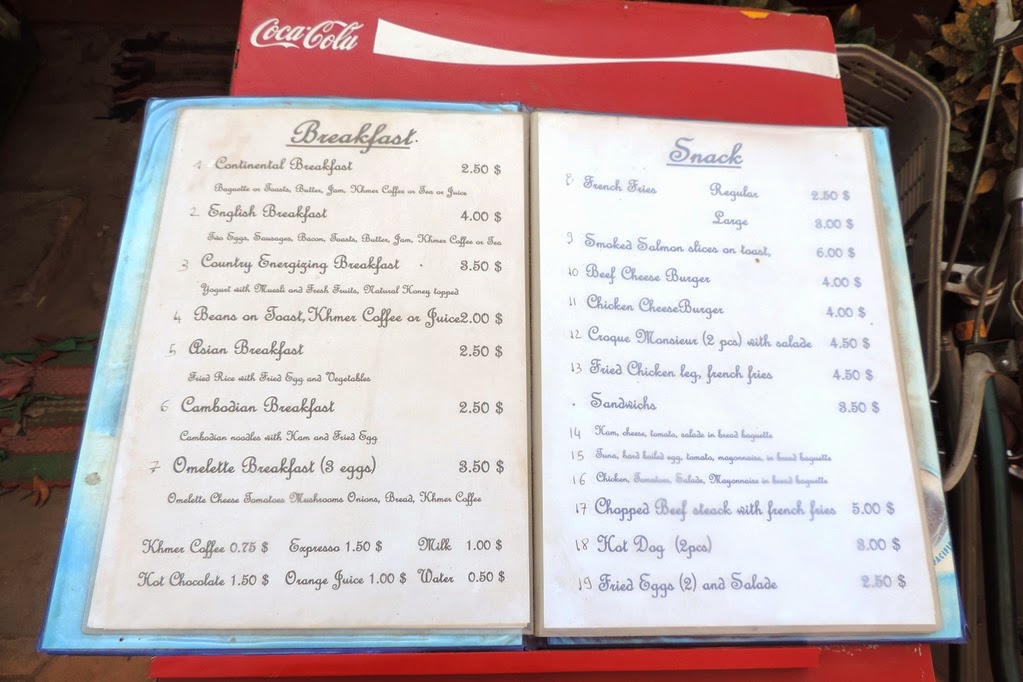 Coca-Cola
Breakfast.
1 Continental Breakfast 2.50 $
Baguette or Toasts, Butter, Jam, Khmer Coffee or Tea or Juice
2 English Breakfast 4.00 $
Two Eggs, Sausages, Bacon, Toasts, Butter, Jam, Khmer Coffee or Tea
3 Country Energizing Breakfast 3.50 $
Yogurt with Muesli and Fresh Fruits, Natural Honey topped
4 Beans on Toast, Khmer Coffee or Juice 2.00 $
5 Asian Breakfast 2.50 $
Fried Rice with Fried Egg and Vegetables
6 Cambodian Breakfast 2.50 $
Cambodian noodles with Ham and Fried Egg
7 Omelette Breakfast (3 eggs) 3.50 $
Omelette Cheese Tomatoes Mushrooms Onions, Bread, Khmer Coffee
Khmer Coffee 0.75 $ Expresso 1.50 $ Milk 1.00 $
Hot Chocolate 1.50 $ Orange Juice 1.00 $ Water 0.50 $
Snack
8 French Fries Regular 2.50 $
Large 3.00 $
9 Smoked Salmon slices on toast, 6.00 $
10 Beef Cheese Burger 4.00 $
11 Chicken CheeseBurger 4.00 $
12 Croque Monsieur (2 pcs) with salade 4.50 $
13 Fried Chicken leg, french fries 4.50 $
. Sandwichs 3.50 $
14 Ham, cheese, tomato, salade in bread baguette
15 Tuna, hard boiled egg, tomato, mayonnaise, in bread baguette
16 Chicken, Tomatoes, Salade, Mayonnaise in bread baguette
17 Chopped Beef steack with french fries 5.00 $
18 Hot Dog (2pcs) 3.00 $
19 Fried Eggs (2) and Salade 2.50 $